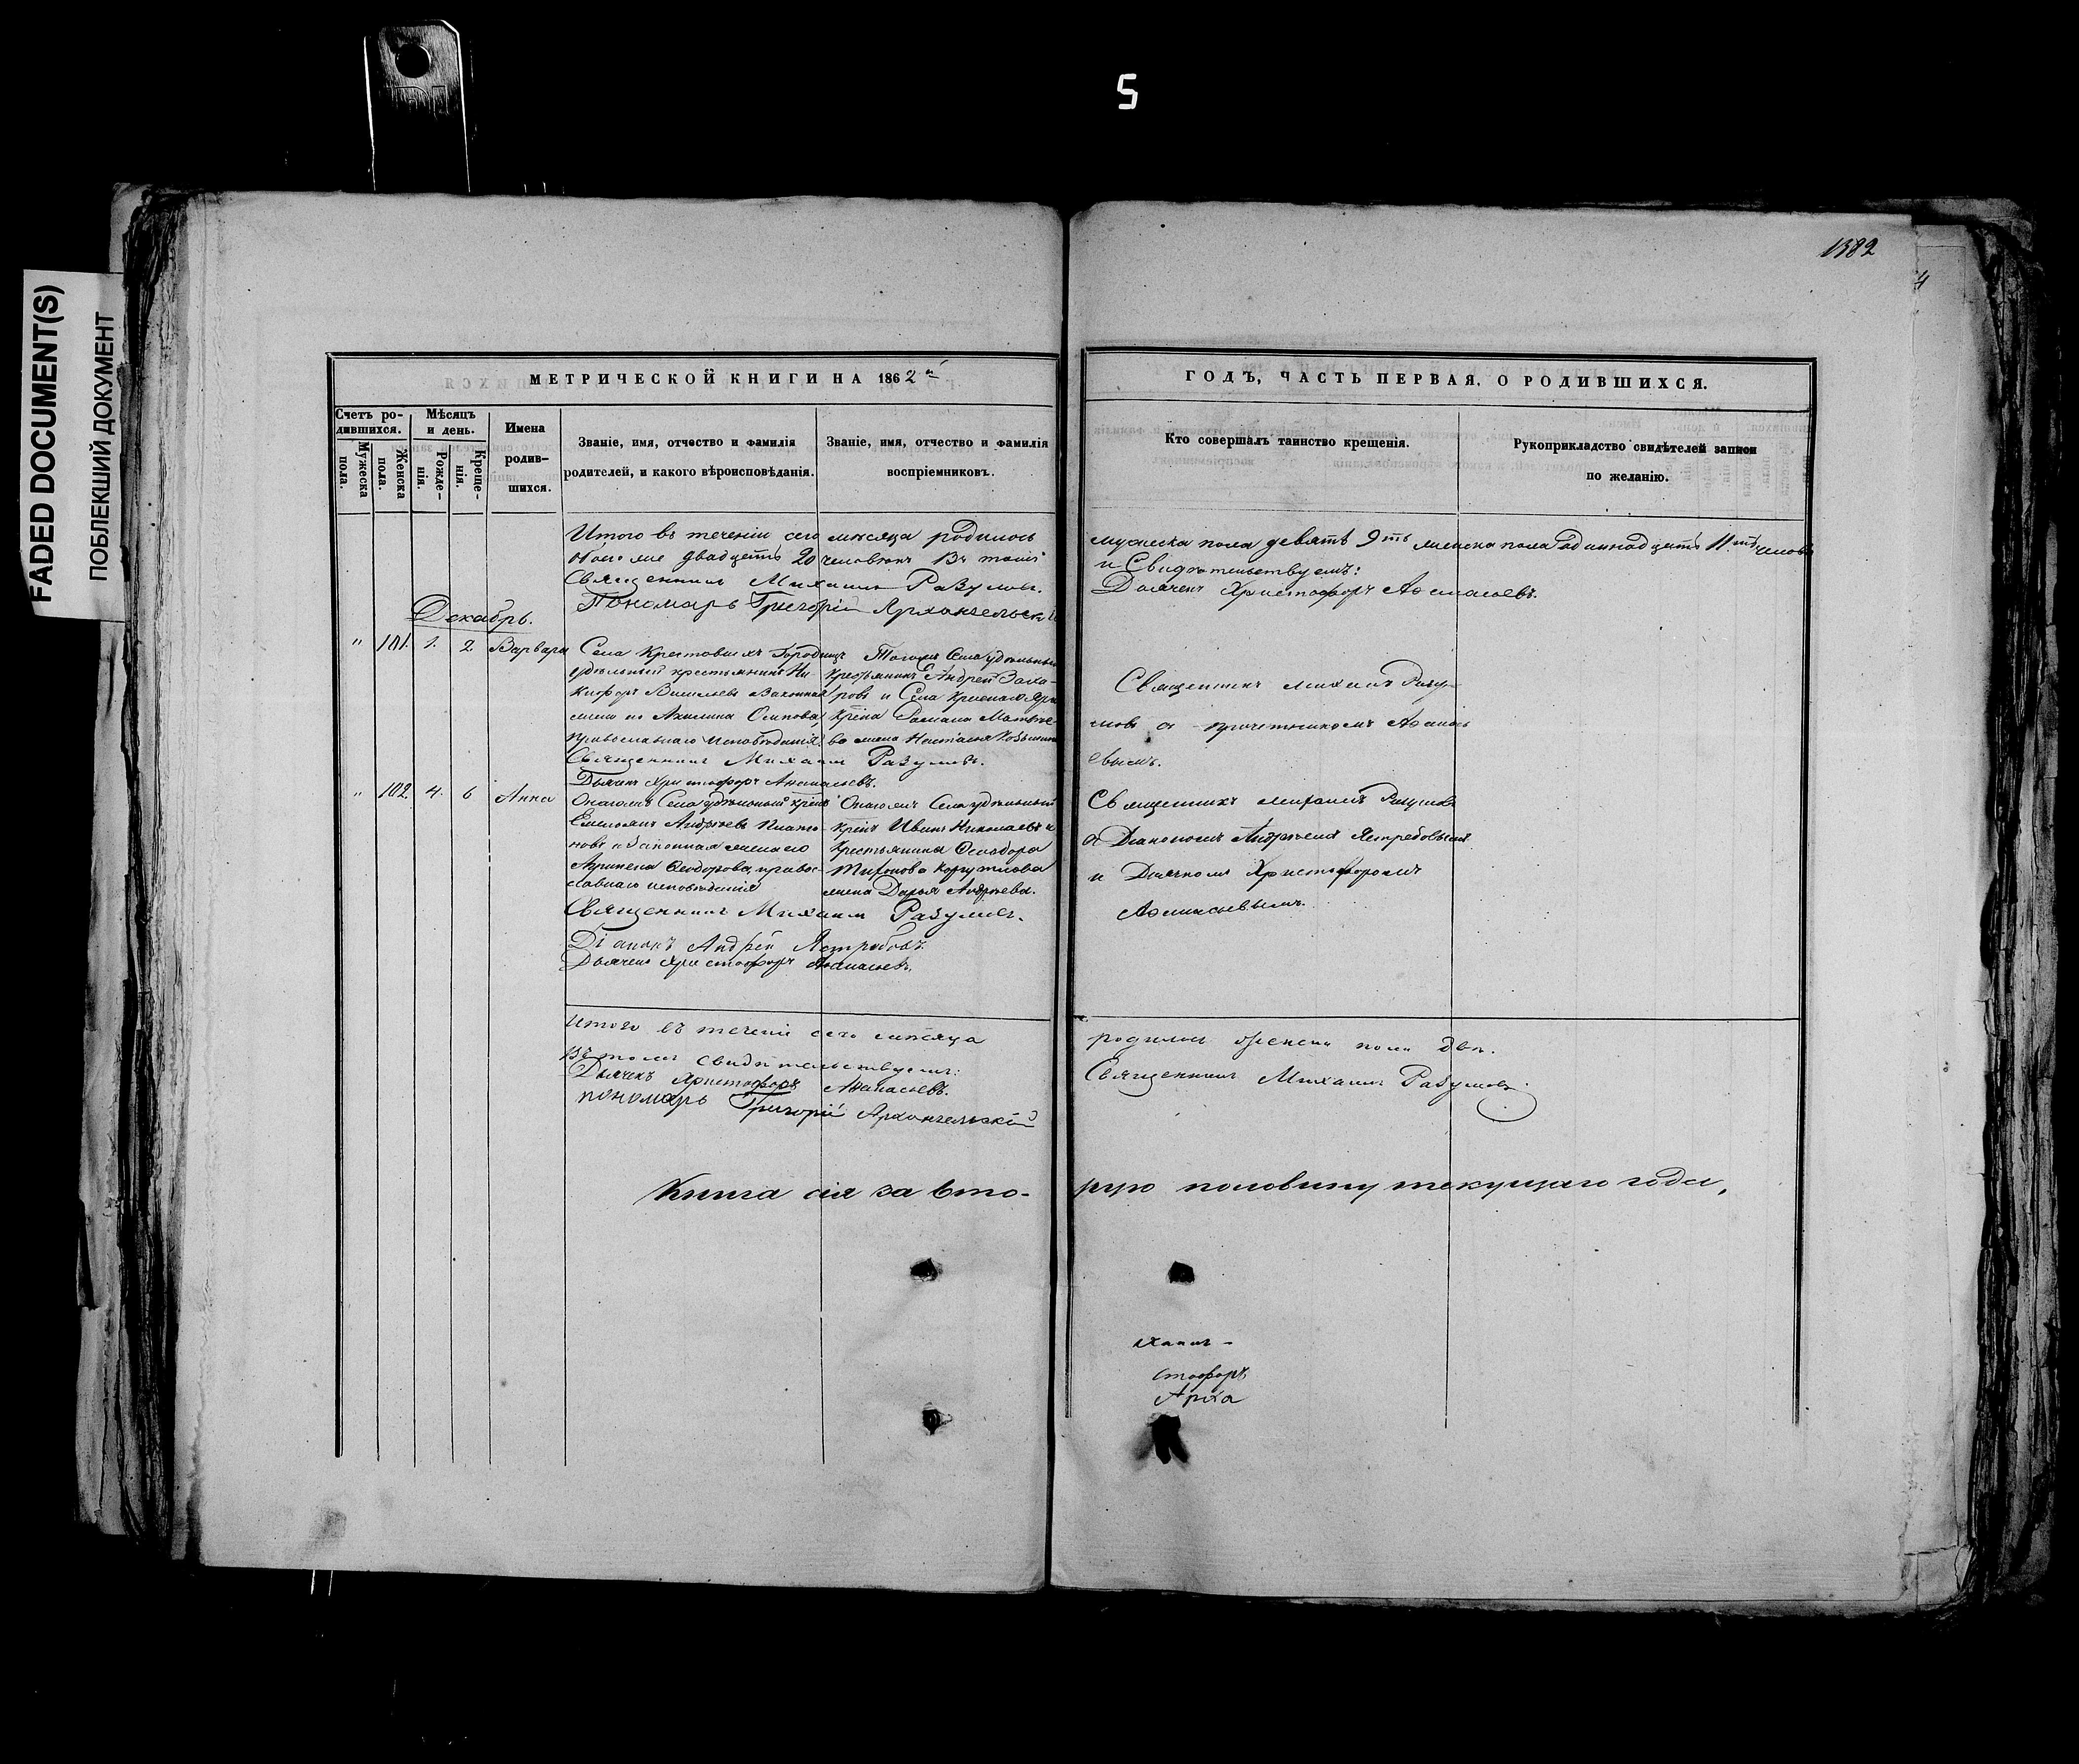 5
FADED DOCUMENT(S)
ПОБЛЕКШИЙ ДОКУМЕНТ
1382
4
МЕТРИЧЕСКОЙ КНИГИ НА 1862й
ГОДЪ, ЧАСТЬ ПЕРВАЯ, О РОДИВШИХСЯ.
Счетъ ро-
дившихся.
Мужеска
пола.
Женска
пола.
Мѣсяцъ
и день.
Рожде-
нія.
Креще-
нія.
Имена
родив-
шихся.
Званіе, имя, отчество и фамилія
родителей, и какого вѣроисповѣданія.
Званіе, имя, отчество и фамилія
воспріемниковъ.
Кто совершалъ таинство крещенія.
Рукоприкладство свидѣтелей записи
по желанію.
Итого въ теченіи сего мѣсяца родилось
мужеска пола девять 9ть женска пола одиннадцать 11ть
двадцать 20 человѣкъ Въ томъ
и Свидѣтельствуемъ:
Священникъ Михаилъ Разумовъ.
Дьячекъ Христофоръ Афанасьевъ.
Пономарь Григорій Архангельскій
Декабрь.
" 101. 1. 2 Варвара
Села Крестовыхъ Городищъ
удѣльный крестьянинъ Ни-
кифоръ Васильевъ и законная
жена его Акилина Осипова,
православнаго исповѣданія.
Тогоже Села удѣльный
крестьянинъ Андрей Заха-
ровъ и Села Краснаго Яра
Священникъ Михаилъ Разу-
мовъ съ причетникомъ Афанась
евымъ.
Священникъ Михаилъ Разумовъ.
Дьячекъ Христофоръ Афанасьевъ.
" 102. 4. 6 Анна
Онагожъ Села удѣльный крнъ
Емельянъ Андреевъ Плато-
новъ и законная жена его
Агрипена Феодорова, правос-
лавнаго исповѣданія
Онагожъ Села удѣльный
крнъ Иванъ Николаевъ и
крестьянина Феодора
Тихонова
жена Дарья Андреева.
Священникъ Михаилъ Разумовъ
съ Діакономъ Андреемъ Ястребовымъ
и Дьячкомъ Христофоромъ
Афанасьевымъ.
Священникъ Михаилъ Разумовъ.
Діаконъ Андрей Ястребовъ.
Дьячекъ Христофоръ Афанасьевъ.
Итого въ теченіи сего мѣсяца
родилось женска пола двѣ.
Въ томъ свидѣтельствуемъ:
Священникъ Михаилъ Разумовъ.
Дьячекъ Христофоръ Афанасьевъ.
пономарь Григорій Архангельскій
Книга сія за вто-
рую половину текущаго года,
стофоръ
Арха